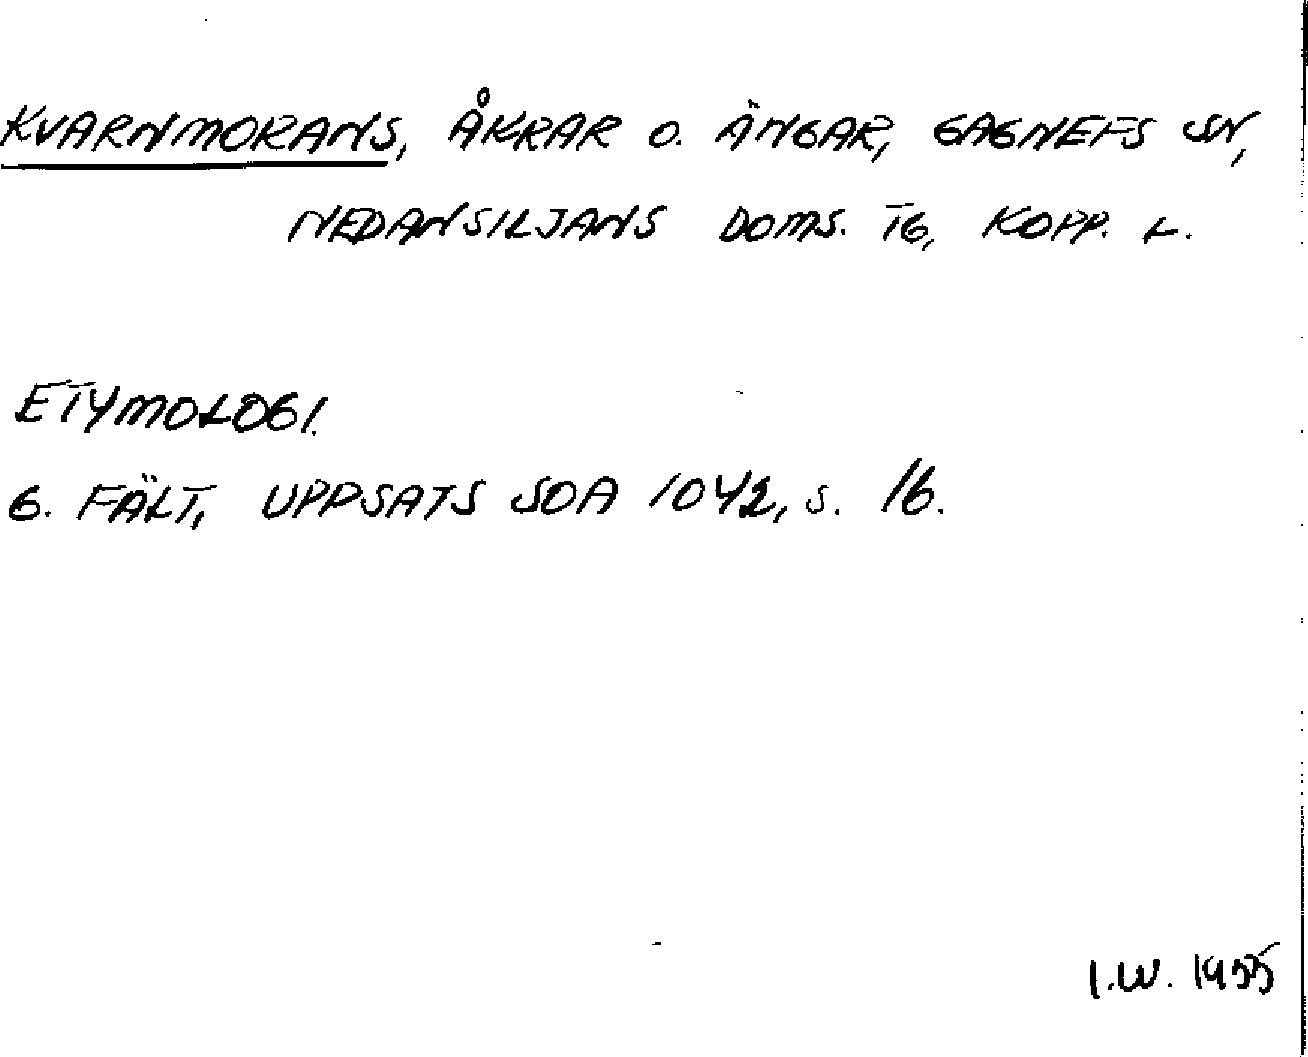 KVARNMORANS, ÅKRAR O. ÄNGAR, GAGNEFS SN,
NEDANSILJANS DOMS. TG, KOPP. L.
ETYMOLOGI.
G. FÄLT, UPPSATS SOA 1042, S. 16.
I.W. 1955